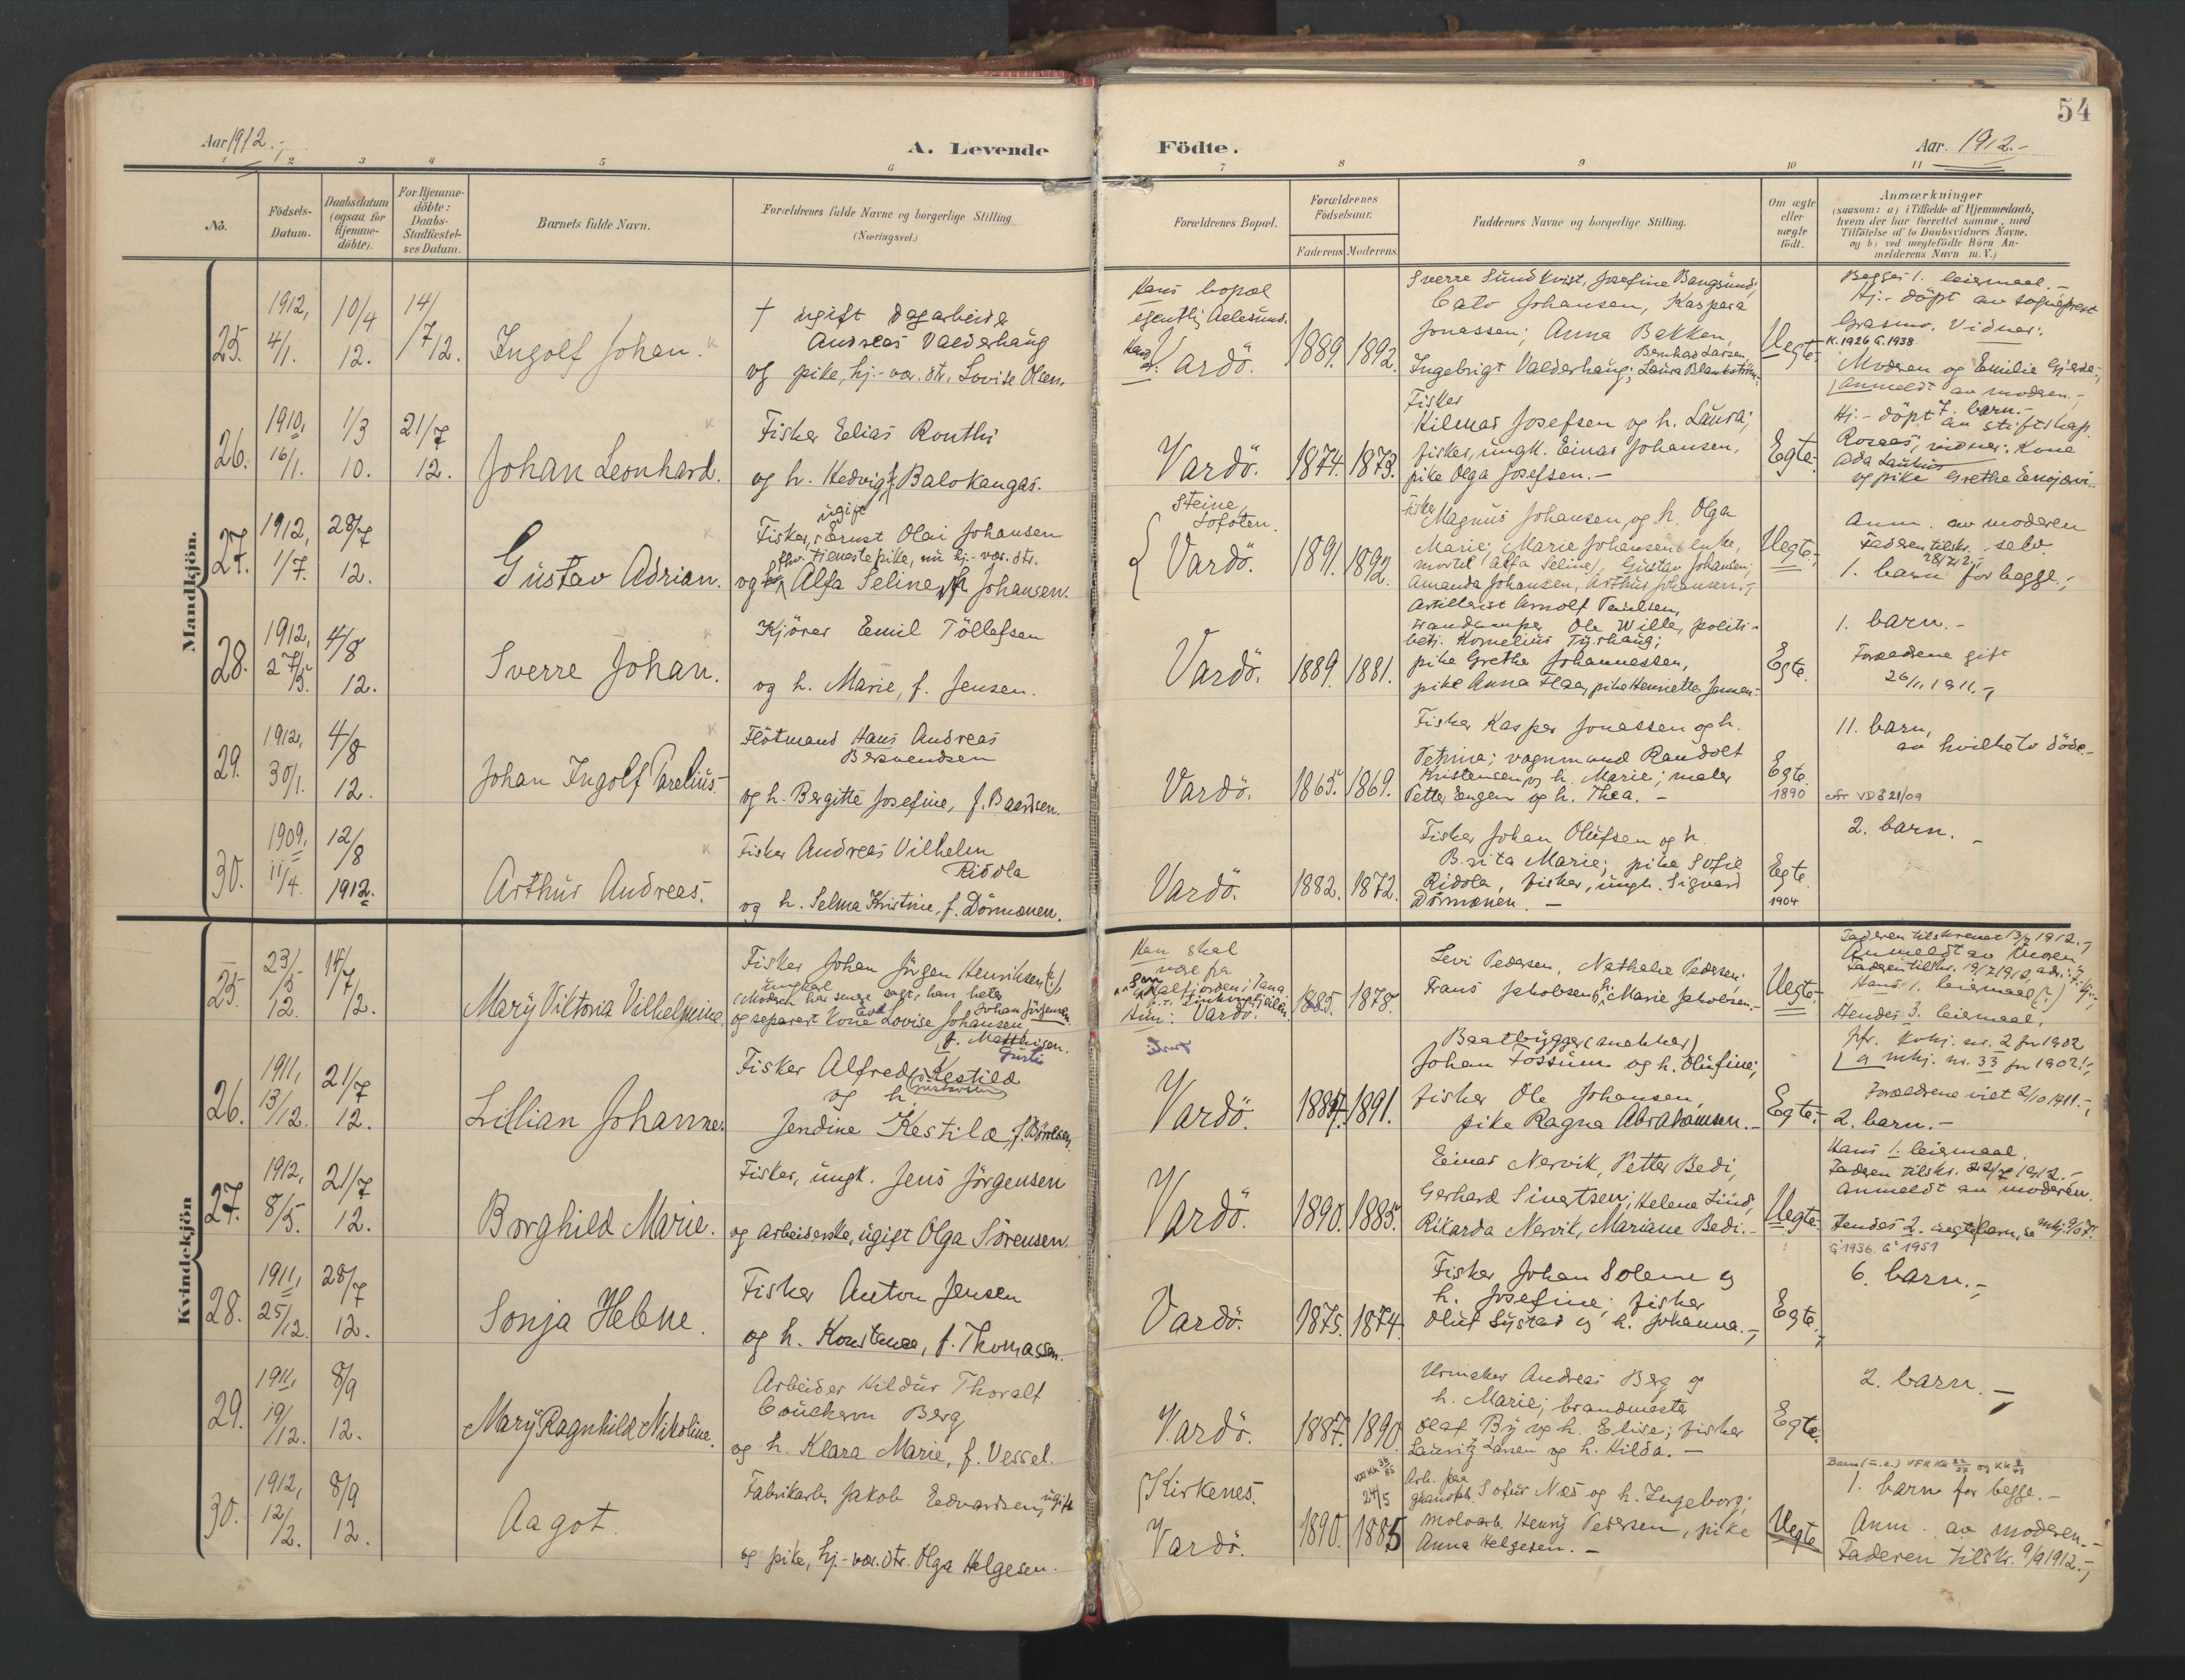 54
Aar 1912.-
A. Levende Födte.
Aar. 1912.-
1 2 3 4 5 6 7 8 9 10 11
No.
Födsels-Datum.
Daabsdatum (ogsaa for Hjemme-döbte).
For Hjemme-döbte: Daabs-Stadfæstel-ses Datum.
Barnets fulde Navn.
Forældrenes fulde Navne og borgerlige Stilling
(Næringsvei.)
Forældrenes Bopæl.
Forældrenes Födselsaar.
Faderens Moderens
Faddernes Navne og borgerlige Stilling.
Om ægte eller uægte födt.
Anmærkninger
(saasom: a) i Tilfælde af Hjemmedaab, hvem der har forrettet samme, med Tilföielse af to Daabsvidners Navne, og b) ved uægtefödte Börn Anmelderens Navn m. V.)
Mandkjön.
25.
1912, 4/1.
10/4 12.
14/7 12.
Ingolf Johan.
† ugift dagarbeider
Andreas Valderhaug
og pike, hj.-vær. dtr. Lovise Olsen.
Hans bopæl
egentlig Aalesund.
Vardö.
1889. 1892.
Sverre Sundkvist, Josefine Bangsund;
Cato Johansen, Kaspara
Jonassen; Anna Bakken,
Bernhard Larsen,
Ingebrigt Valderhaug; Laura Blankström.
Uegte.
Begges 1. leiermaal.-
Hj.-döpt av sogneprest
Vidner:
K.1926 G.1938
Moderen og Emilie
Anmeldt av moderen.-
26.
1910, 16/1.
1/3 10.
21/7 12.
Johan Leonhard.
Fisker Elias Routhi
og h. Hedvig f. Balokangas.
Vardö.
1874. 1873.
Fisker
Hilmar Josefsen og h. Laura;
fisker, ungk. Einar Johansen,
pike Olga Josefsen.-
Egte.
7. barn.-
Hj.-döpt av stiftskap.
vidner: Kone
og pike Grethe
27.
1912, 1/7.
28/7 12.
Gustav Adrian.
ugift
Fisker, Ernst Olai Johansen
fhv. tjenestepike, nu hj.-vær. dtr.
og Alfa Seline Johansen.
Steine, Lofoten.
Vardö.
1891. 1892.
Fisker Magnus Johansen og h. Olga
Marie; Marie Johansen enke,
mortil Alfa Seline), Gustav Johansen;
Amanda Johansen, Arthur Johansen.-
Uegte.
Anm. av moderen
Faderen tilskr. selv.
28/7 12.-
1. barn for begge.-
28.
1912, 27/5.
4/8 12.
Sverre Johan.
Kjörer Emil Töllefsen
og h. Marie, f. Jensen.
Vardö.
1889. 1881.
Artillerist Arnolf Paulsen,
Ole Wille, politi-
betj. Kornelius Tyshaug;
pike Grethe Johannessen,
pike Anna Haag, pike Henriette Jensen.-
Egte.
1. barn.-
Forældrene gift
26/11 1911.-
29.
1912, 30/1.
4/8 12.
Johan Ingolf Parelius.
Flötmand Hans Andreas
Bersvendsen
og h. Bergitte Josefine, f. Baardsen.
Vardö.
1865. 1869.
Fisker Kasper Jonassen og h.
Petrine; vognmand Randolf
Kristensen og h. Marie; maler
Petter Engen og h. Thea.-
Egte.
1890
11. barn,
av hvilke to döde.-
cfr VDö 21/09
30.
1909, 11/4.
12/8 1912.
Arthur Andreas.
Fisker Andreas Vilhelm
Ridola
og h. Selma Kristine, f. Dörmænen.
Vardö.
1882. 1872.
Fisker Johan Olufsen og h.
Brita Marie; pike Sofie
Ridola, fisker, ungk. Sigvard
Dörmænen.-
Egte.
1904
2. barn.-
Kvindekjön
25.
23/5 12.
14/7 12.
Mary Viktoria Vilhelmine.
Fisker Johan Jörgen Henriksen (?),
ungkarl
(Moderen har senere sagt, han heter
Johan Jörgensen.
og separert kone Lovise Johansen
f. Mathisen.
Han skal
være fra
i Tana
hun: Vardö.
1885. 1878.
Levi Pedersen, Nathalie Pedersen;
Frans Jakobsen, Marie Jakobsen.-
Uegte.
Faderen tilskrevet 13/7 1912.-
Anmeldt av moren
Hans 1. leiermaal (?)
Hendes 3. leiermaal,
jfr. kvkj. nr. 2 for 1902
og mkj. nr. 33 for 1902!-
26.
1911, 13/12.
21/7 12.
Lillian Johanne.
Fisker Alfred Kestild
og h.
Jendine Kestila, f. Bårdsen.
Vardö.
1887. 1891.
Baatbygger (snekker)
Johan Fossum og h. Olufine;
fisker Ole Johansen,
pike Ragna Abrahamsen.-
Egte.
Forældrene viet 2/10 1911.-
2. barn.-
27.
1912, 8/5.
21/7 12.
Borghild Marie.
Fisker, ungk. Jens Jörgensen
og arbeiderske, ugift Olga Sörensen.
Vardö.
1890. 1885.
Einar Nervik, Petter Bedi,
Gerhard Sivertsen; Helene Lund,
Rikarda Nervik, Mariane Bedi.-
Uegte.
Hans 1. leiermaal.
Faderen tilskr. 22/7 1912.-
Anmeldt av moderen.
Hendes 2. uegte barn, se mkj. 9/07.
G 1936. G 1951
28.
1911, 25/12.
28/7 12.
Sonja Helene.
Fisker Anton Jensen
og h. Konstanse, f. Thomassen.
Vardö.
1875. 1874.
Fisker Johan Soleme og
h. Josefine; fisker
Oluf Systad og h. Johanna.-
Egte.
6. barn.-
29.
1911, 19/12.
8/9 12.
Mary Ragnhild Nikoline.
Arbeider Hildur Thoralf
Couchern Berg
og h. Klara Marie, f. Vessel.
Vardö.
1887. 1890.
Urmaker Andreas Berg og
h. Marie; brandmester
Olaf By og h. Elise; fisker
Lauritz Larsen og h. Hilda.-
Egte.
2. barn.-
30.
1912, 12/2.
8/9 12.
Aagot.
Fabrikarb. Jakob Edvardsen, ugift
og pike, hj.-vær. dtr. Olga Helgesen.
Kirkenes.
Vardö.
24/5
1890. 1885
Arb. paa
Sofus Næs og h. Ingeborg;
moloarb. Henry Pedersen, pike
Anna Helgesen.-
Uegte
1. barn for begge.-
Anm. av moderen.-
Faderen tilskr. 9/9 1912.-